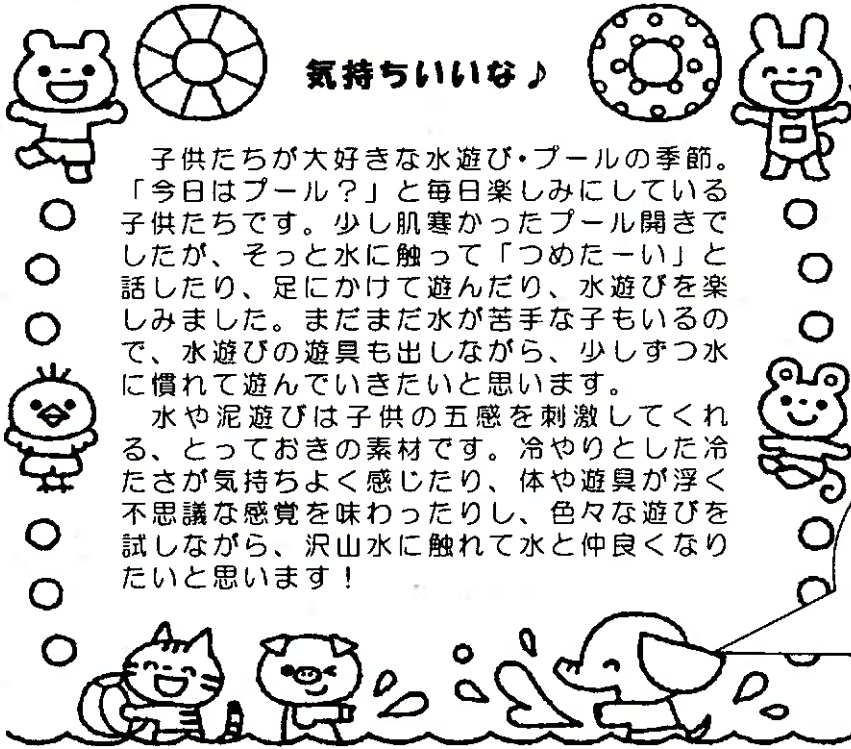 気持ちいいな♪
子供たちが大好きな水遊び・プールの季節。
「今日はプール？」と毎日楽しみにしている
子供たちです。少し肌寒かったプール開きで
したが、そっと水に触って「つめたーい」と
話したり、足にかけて遊んだり、水遊びを楽
しみました。まだまだ水が苦手な子もいるの
で、水遊びの遊具も出しながら、少しずつ水
に慣れて遊んでいきたいと思います。
水や泥遊びは子供の五感を刺激してくれ
る、とっておきの素材です。冷やりとした冷
たさが気持ちよく感じたり、体や遊具が浮く
不思議な感覚を味わったりし、色々な遊びを
試しながら、沢山水に触れて水と仲良くなり
たいと思います！